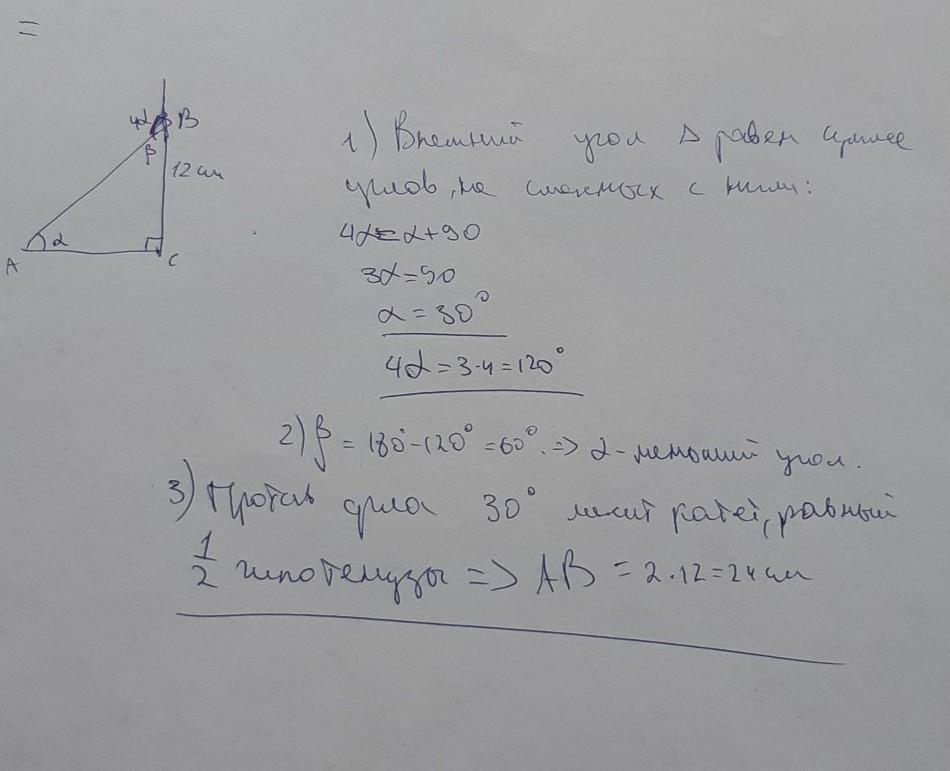 =
4α B
β
12 см
α
A C
1) Внешний угол Δ равен сумме
углов, не смежных с ним:
4α = α+90
3α=90
α = 30°
4α = 3·4 = 120°
2) β = 180°-120° = 60°. => α - меньший угол.
3) Против угла 30° лежит катет, равный
1/2 гипотенузы => AB = 2·12=24 см